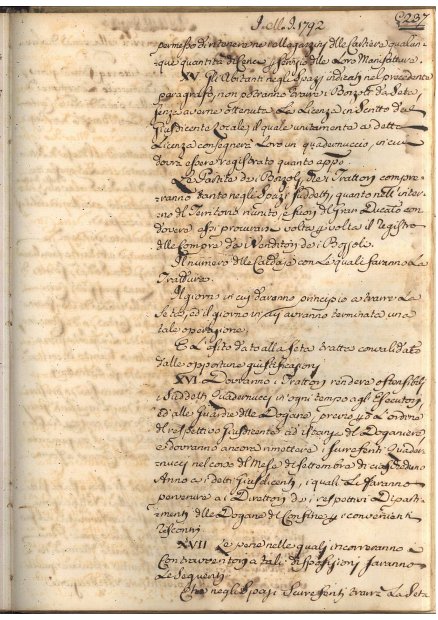 1792
237
permesso di ritenere ne' vollaggi delle Cartiere qualun-
que quantità di Cenci, servizio delle Loro Manifatture.
XV. Gli Abitanti negli Spazi indicati nel precedente
paragrafo, non potranno trarre i Bozzoli da Seta,
senza averne ottenuta La Licenza in Scritto del
Giusdicente Locale, il quale unitamente a detta
Licenza consegnerà Loro un quadernuccio, in cui
dovrà essere registrato quanto appo.
Le Partite de i Bozzoli, che i Trattori compre-
ranno tanto negli Spazi suddetti, quanto nell'inter-
no del Territorio riunito, e fuori del Gran Ducato con
dovere essi procurarsi volta per volta il Registro
delle Compre da' Venditori de i Bozzoli.
Il numero delle Caldaje con Le quali faranno La
Trattura.
Il giorno in cui daranno principio a trarre La
Seta, ed il giorno in cui avranno terminata una
tale operazione,
E L'esito dato alla seta tratta convalidato
dalle opportune giustificazioni
XVI. Dovranno i Trattori rendere ostensibili
i Suddetti Quadernucci in ogni tempo agli Esecutori
ed alle Guardie delle Dogane, previo però L'ordine
del respettivo Giusdicente ad istanza del Doganiere,
e dovranno ancora rimettere i surreferiti Quader-
nucci nel corso del Mese di Settembre di ciaschedun
Anno a i detti Giusdicenti, i quali Li faranno
pervenire a i Direttori de i respettivi Diparti-
menti delle Dogane del Confine per i convenienti
riscontri.
XVII. Le pene nelle quali incorreranno i
Contravventori a tali disposizioni saranno
Le Seguenti
Che negli Spazi Surreferiti trarrà La Seta